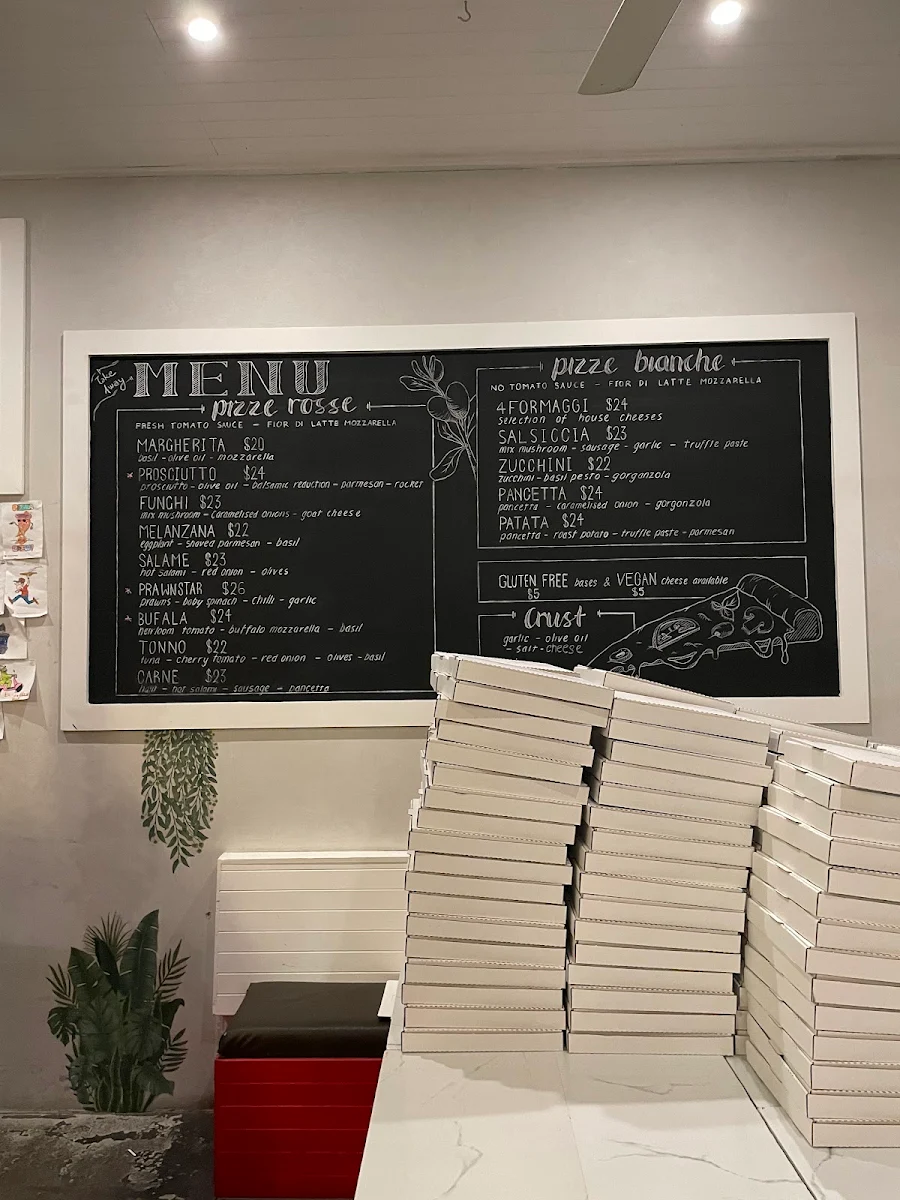 Take Away
MENU
pizze rosse
FRESH TOMATO SAUCE - FIOR DI LATTE MOZZARELLA
MARGHERITA $20
basil - olive oil - mozzarella
* PROSCIUTTO $24
prosciutto - olive oil - balsamic reduction - parmesan - rocket
FUNGHI $23
mix mushroom - caramelised onions - goat cheese
MELANZANA $22
eggplant - shaved parmesan - basil
SALAME $23
hot salami - red onion - olives
* PRAWNSTAR $26
prawns - baby spinach - chilli - garlic
* BUFALA $24
heirloom tomato - buffalo mozzarella - basil
TONNO $22
tuna - cherry tomato - red onion - olives - basil
CARNE $23
hot salami - sausage - pancetta
pizze bianche
NO TOMATO SAUCE - FIOR DI LATTE MOZZARELLA
4FORMAGGI $24
selection of house cheeses
SALSICCIA $23
mix mushroom - sausage - garlic - truffle paste
ZUCCHINI $22
zucchini - basil pesto - gorgonzola
PANCETTA $24
pancetta - caramelised onion - gorgonzola
PATATA $24
pancetta - roast potato - truffle paste - parmesan
GLUTEN FREE bases & VEGAN cheese available
$5 $5
Crust
garlic - olive oil
- salt - cheese